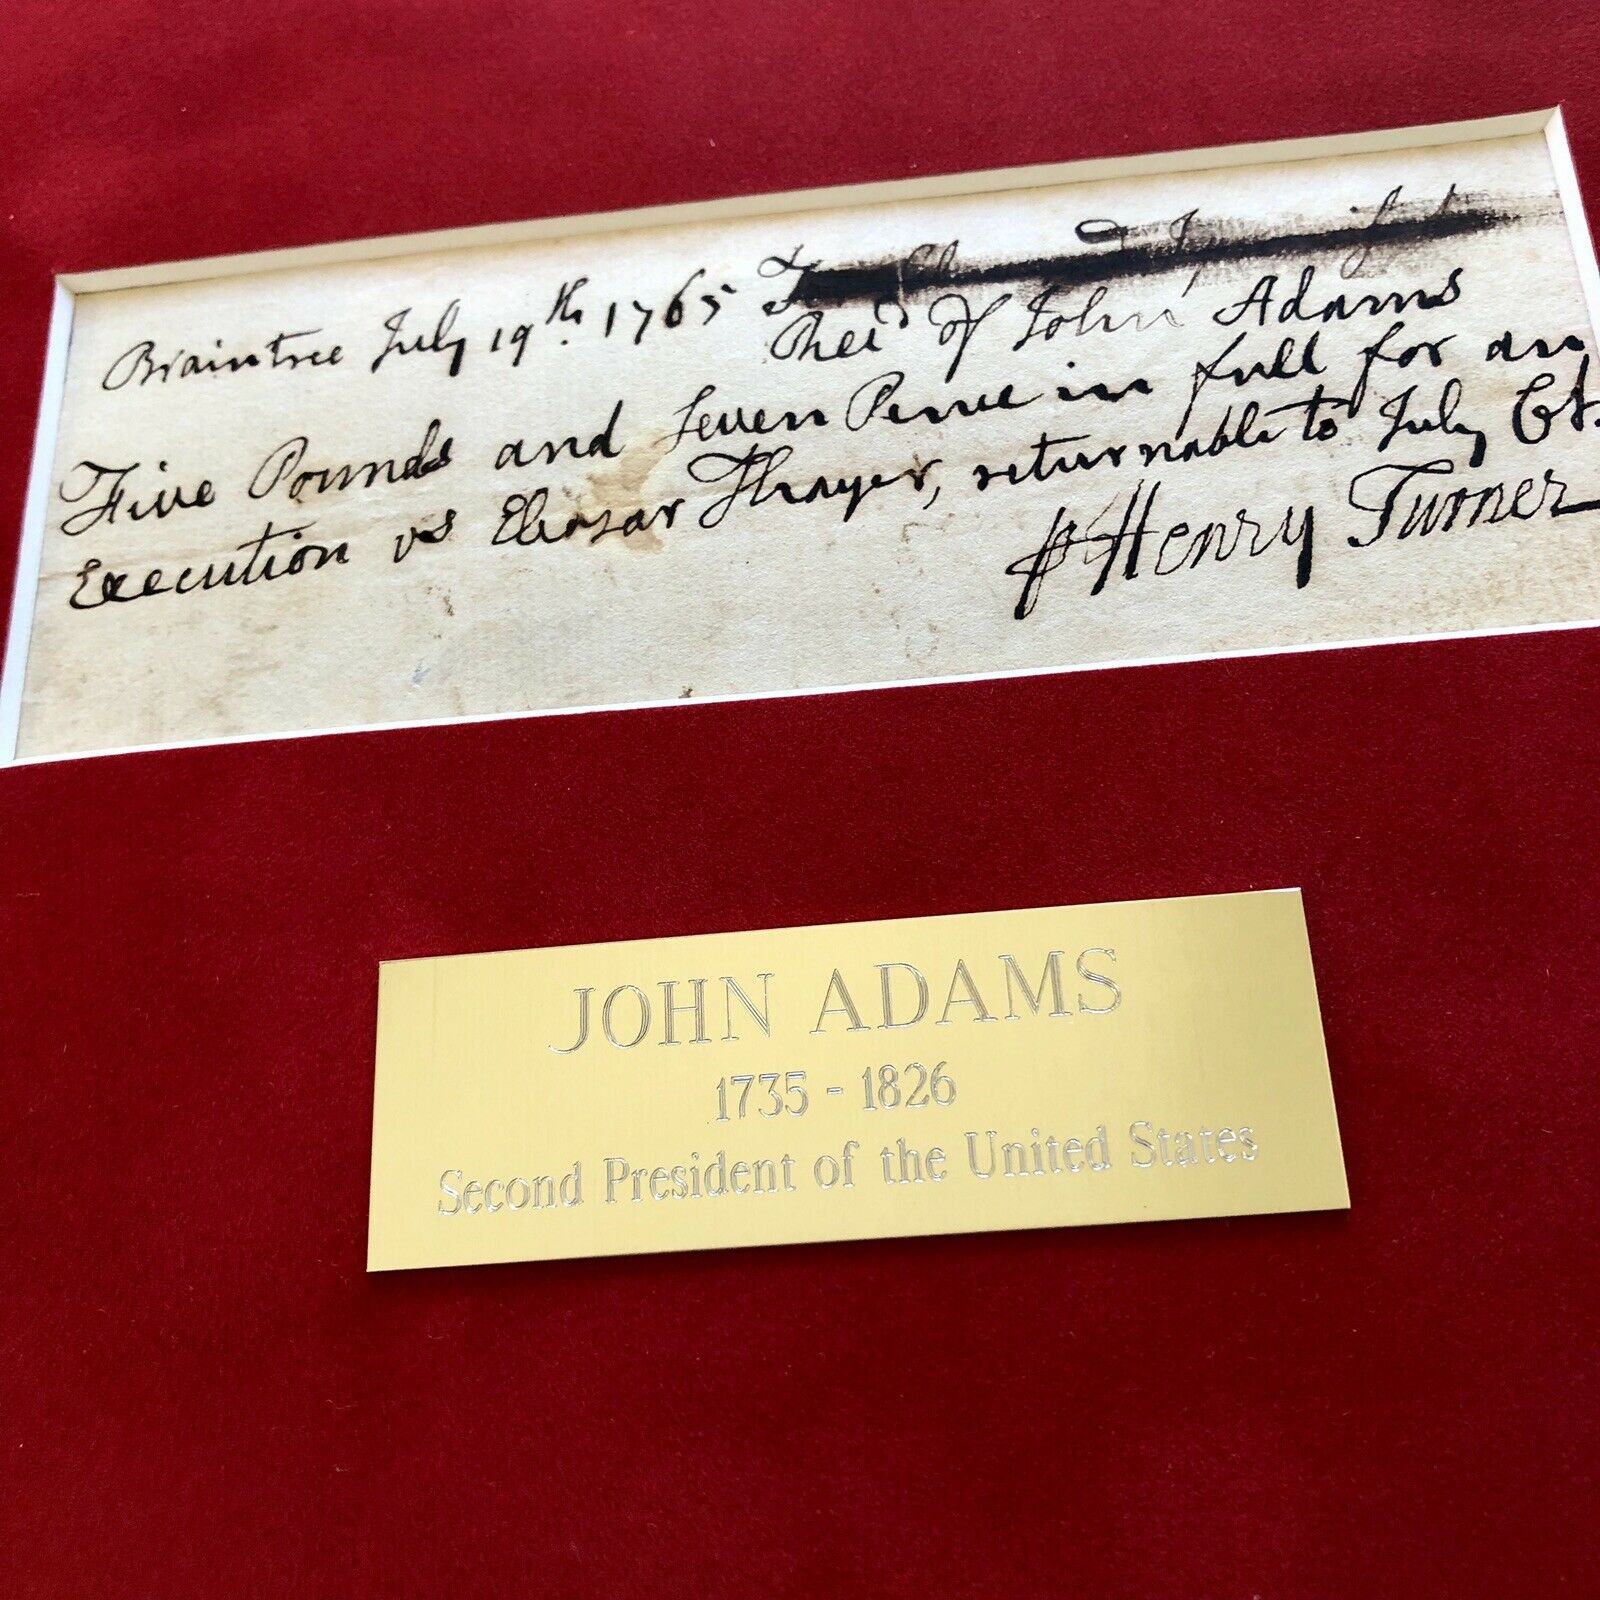 Braintree July 19th. 1765
Rec'd of John Adams
Five Pounds and Seven Pence in full for an
Execution vs Eleazar Thayer, returnable to July Ct.
Henry Turner
JOHN ADAMS
1735 - 1826
Second President of the United States